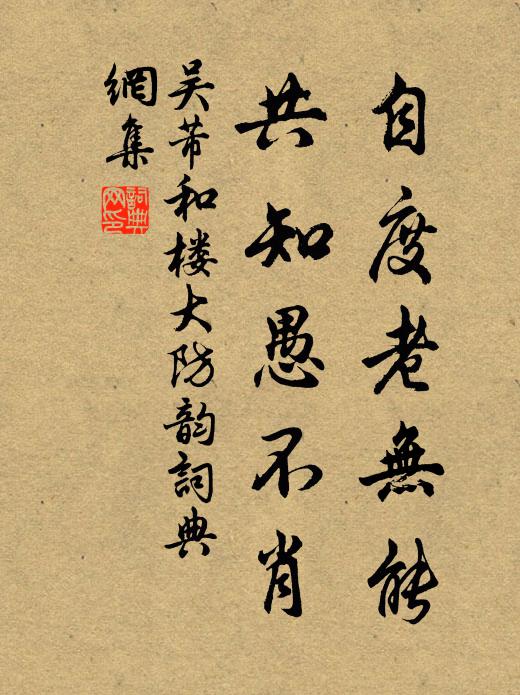 自度老無能
共知愚不肖
吴芾和楼大防韵詞典
網集
詞典网印